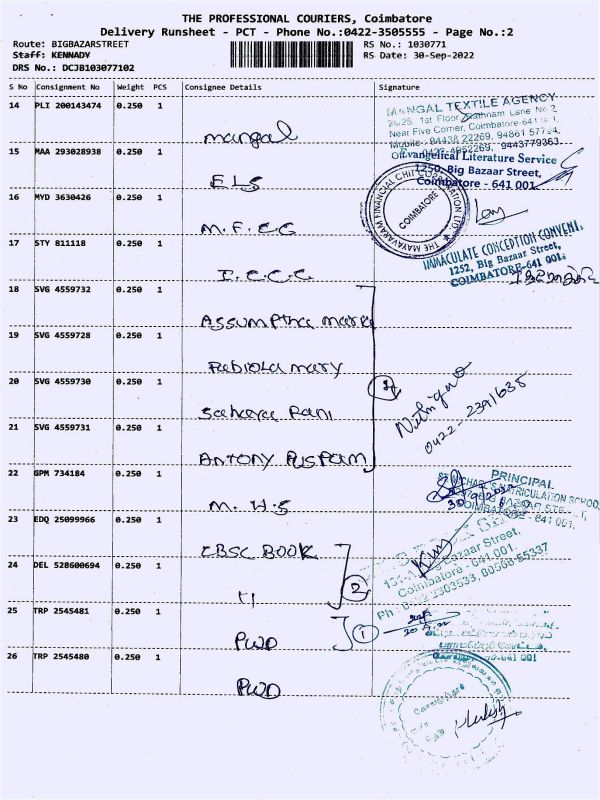 THE PROFESSIONAL COURIERS, Coimbatore
Delivery Runsheet - PCT - Phone No.:0422-3505555 - Page No.:2
Route: BIGBAZARSTREET
RS No.: 1030771
Staff: KENNADY
RS Date: 30-Sep-2022
DRS No.: DCJB103077102
S No Consignment No Weight PCS Consignee Details Signature
14 PLI 200143474 0.250 1 mangal
MANGAL TEXTILE AGENCY
24/25, 1st Floor, Lane No.2
Near Five Corner, Coimbatore-641 001.
Mobile: 94438 22269, 94861 57794,
Off: 0422-4952269, 9443779363
15 MAA 293028938 0.250 1 ELS
Evangelical Literature Service
1250, Big Bazaar Street,
Coimbatore - 641 001
16 MYD 3630426 0.250 1 M.F.C.C
THE MAYAVARAM FINANCIAL CHIT CORPORATION LTD
COIMBATORE
17 STY 811118 0.250 1 I.C.C.C
IMMACULATE CONCEPTION CONVENT,
1252, Big Bazaar Street,
COIMBATORE-641 001
18 SVG 4559732 0.250 1 Assumptha mary
19 SVG 4559728 0.250 1 Fabiola mary
20 SVG 4559730 0.250 1 Sahaya Rani
0422-2391635
21 SVG 4559731 0.250 1 Antony Puspam
22 GPM 734184 0.250 1 M.H.S
PRINCIPAL
MATRICULATION SCHOOL
BIG BAZAAR STREET,
COIMBATORE - 641 001.
23 EDQ 25099966 0.250 1 CBSC BOOK
24 DEL 528600694 0.250 1 11
2
Bazaar Street,
Coimbatore - 641 001.
Ph: 0422 2303533, 80568 55337
25 TRP 2545481 0.250 1 PWD
1
641 001
26 TRP 2545480 0.250 1 PWD